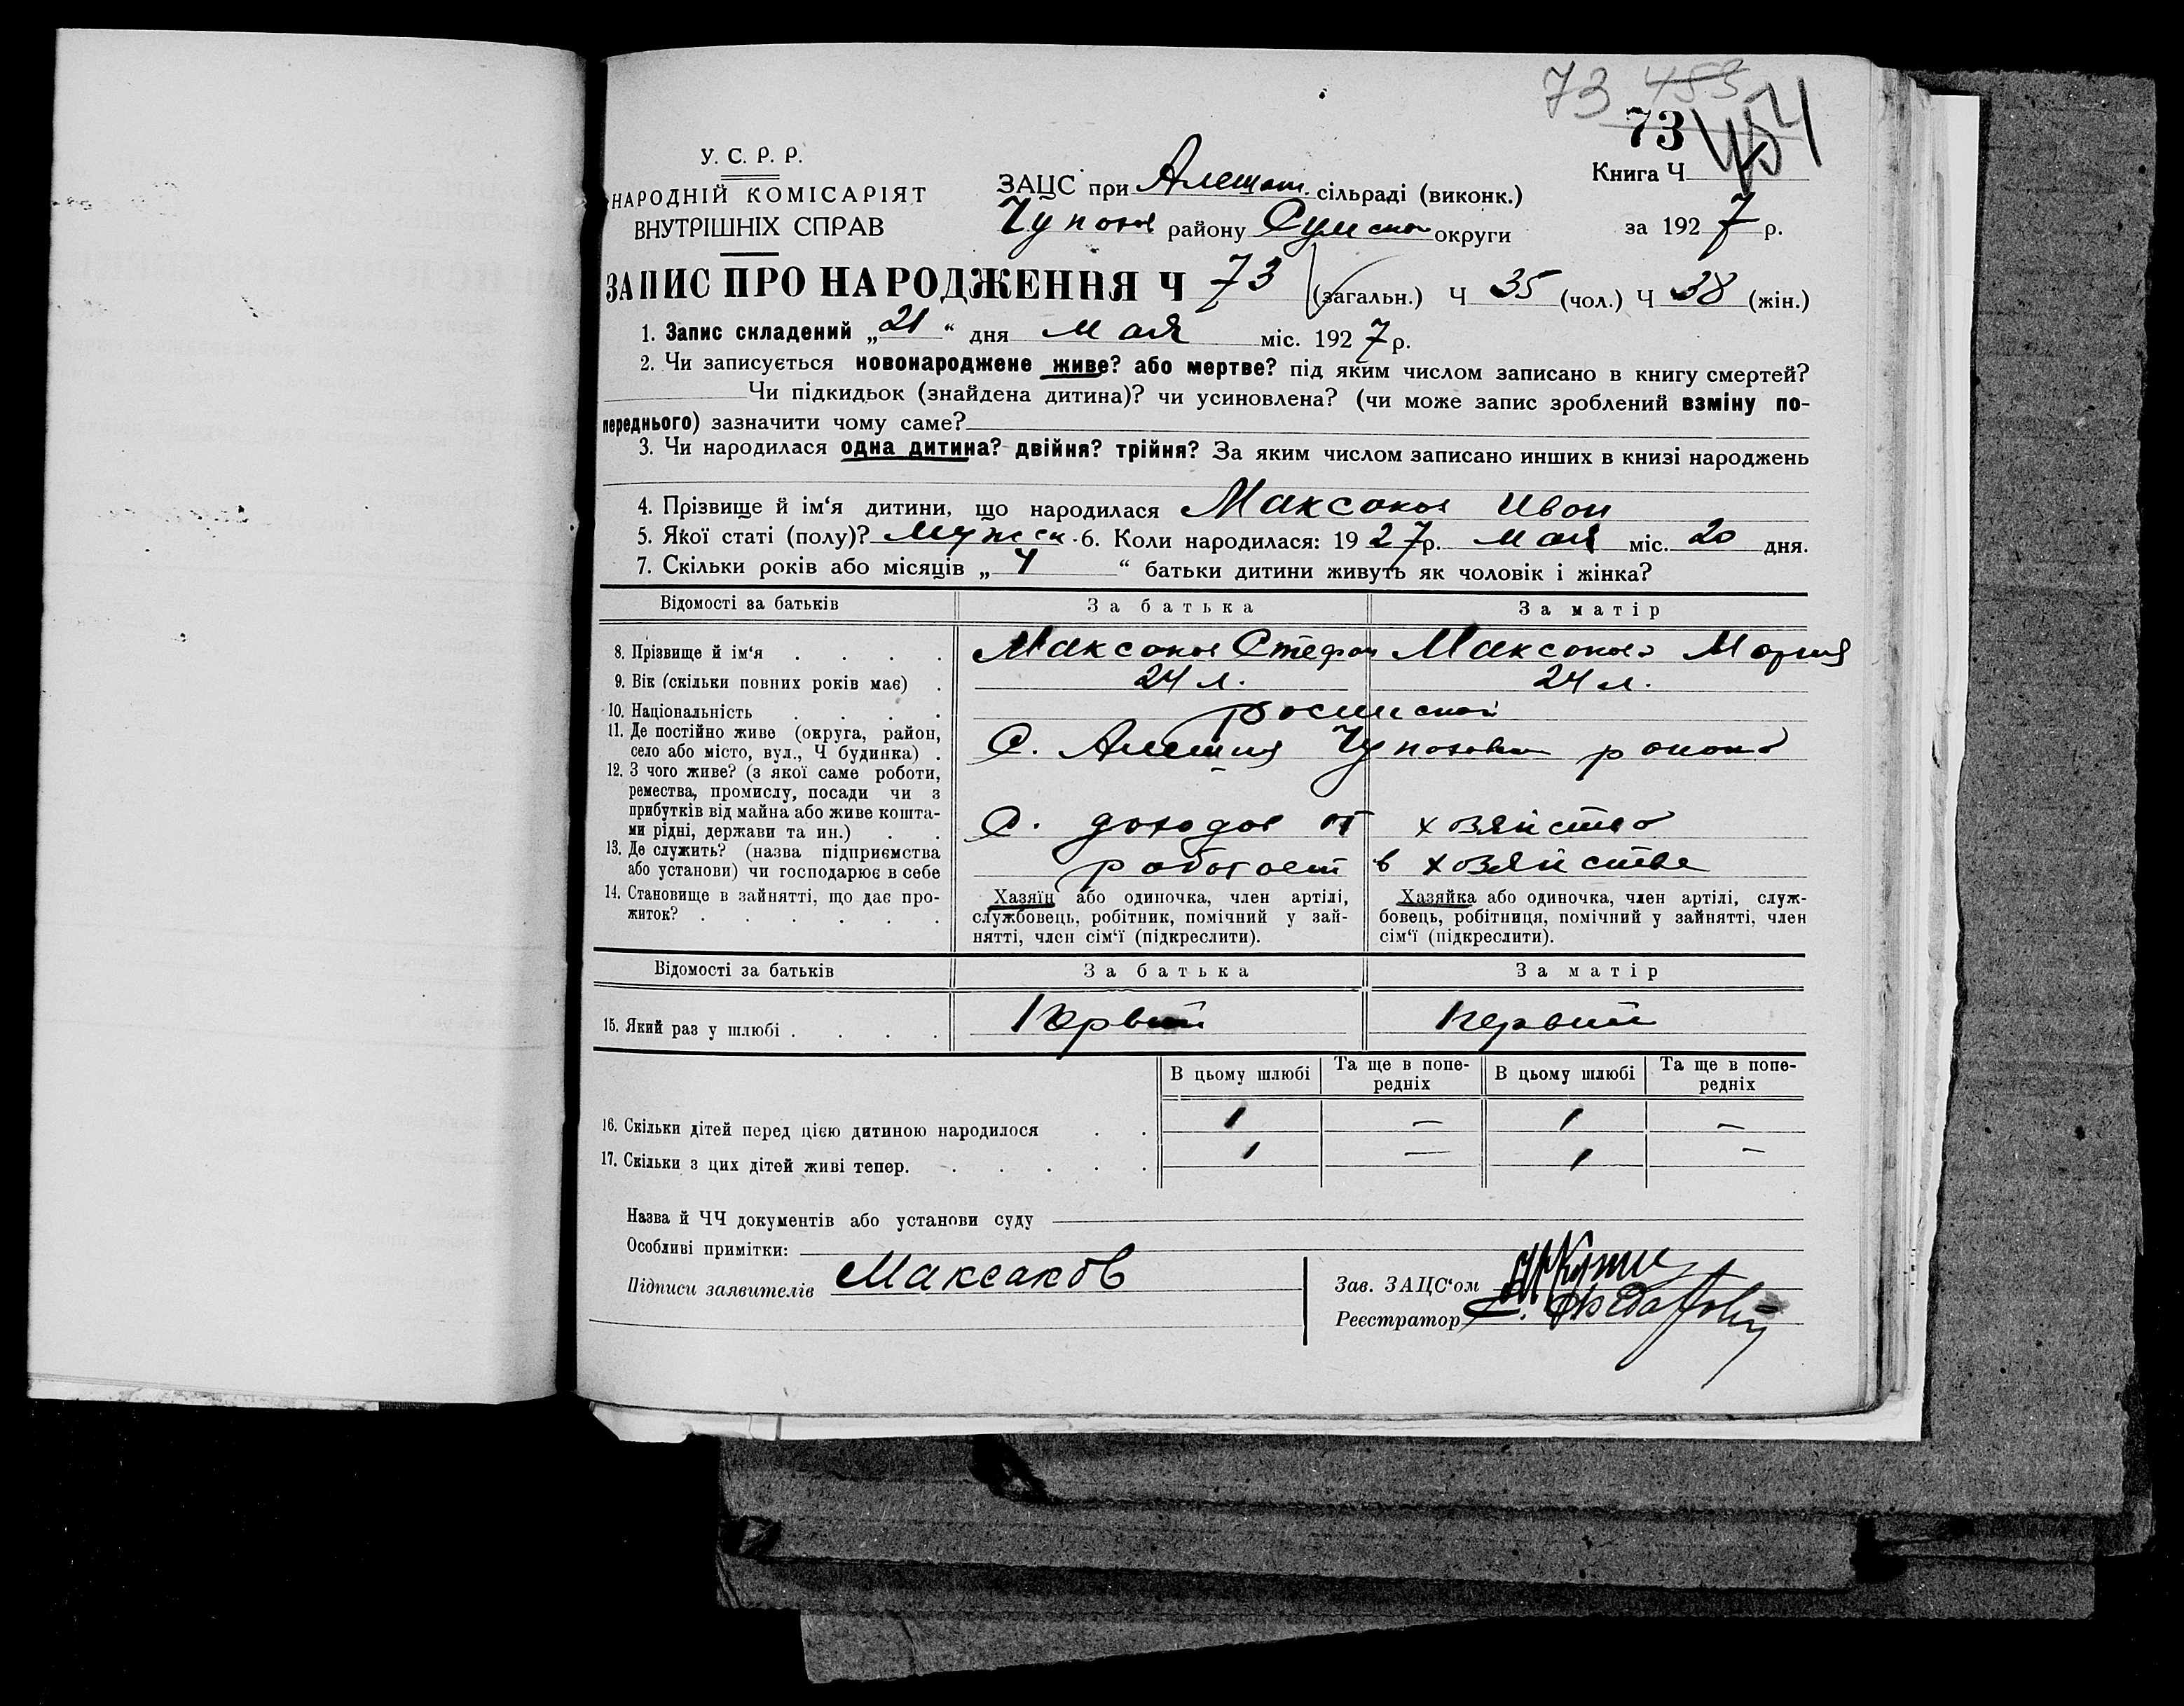 73 453
73 454
У. С. Р. Р.
НАРОДНІЙ КОМІСАРІЯТ
ВНУТРІШНІХ СПРАВ
ЗАЦС при Алешан. сільраді (виконк.)
Чупахов району Сумской округи
Книга Ч
за 1927 р.
ЗАПИС ПРО НАРОДЖЕННЯ Ч 73 (загальн.) Ч 35 (чол.) Ч 38 (жін.)
1. Запис складений „21“ дня Мая міс. 1927 р.
2. Чи записується новонароджене живе? або мертве? під яким числом записано в книгу смертей?
Чи підкидьок (знайдена дитина)? чи усиновлена? (чи може запис зроблений взміну по-
переднього) зазначити чому саме?
3. Чи народилася одна дитина? двійня? трійня? За яким числом записано инших в книзі народжень
4. Прізвище й ім‘я дитини, що народилася Максаков Иван
5. Якої статі (полу)? Мужск. 6. Коли народилася: 1927р. Мая міс. 20 дня.
7. Скільки років або місяців „ 4 “ батьки дитини живуть як чоловік і жінка?
Відомості за батьків За батька За матір
8. Прізвище й ім‘я Максаков Стефан Максакова Мария
9. Вік (скільки повних років має) 24 л. 24 л.
10. Національність
11. Де постійно живе (округа, район,
село або місто, вул., Ч будинка) С. Алешня Чупаховск района
12. З чого живе? (з якої саме роботи,
ремества, промислу, посади чи з
прибутків від майна або живе кошта-
ми рідні, держави та ин.) С. доходов от хозяйства
13. Де служить? (назва підприємства
або установи) чи господарює в себе работает в хозяйстве
14. Становище в зайнятті, що дає про-
житок?
Хазяїн або одиночка, член артілі,
службовець, робітник, помічний у зай-
нятті, член сім‘ї (підкреслити).
Хазяйка або одиночка, член артілі, служ-
бовець, робітниця, помічний у зайнятті, член
сім‘ї (підкреслити).
Відомості за батьків За батька За матір
15. Який раз у шлюбі Первый Первый
В цьому шлюбі Та ще в попе-
редніх В цьому шлюбі Та ще в попе-
редніх
16. Скільки дітей перед цією дитиною народилося 1 — 1 —
17. Скільки з цих дітей живі тепер. 1 — 1 —
Назва й ЧЧ документів або установи суду
Особливі примітки:
Підписи заявителів Максаков
Зав. ЗАЦС‘ом
Реєстратор